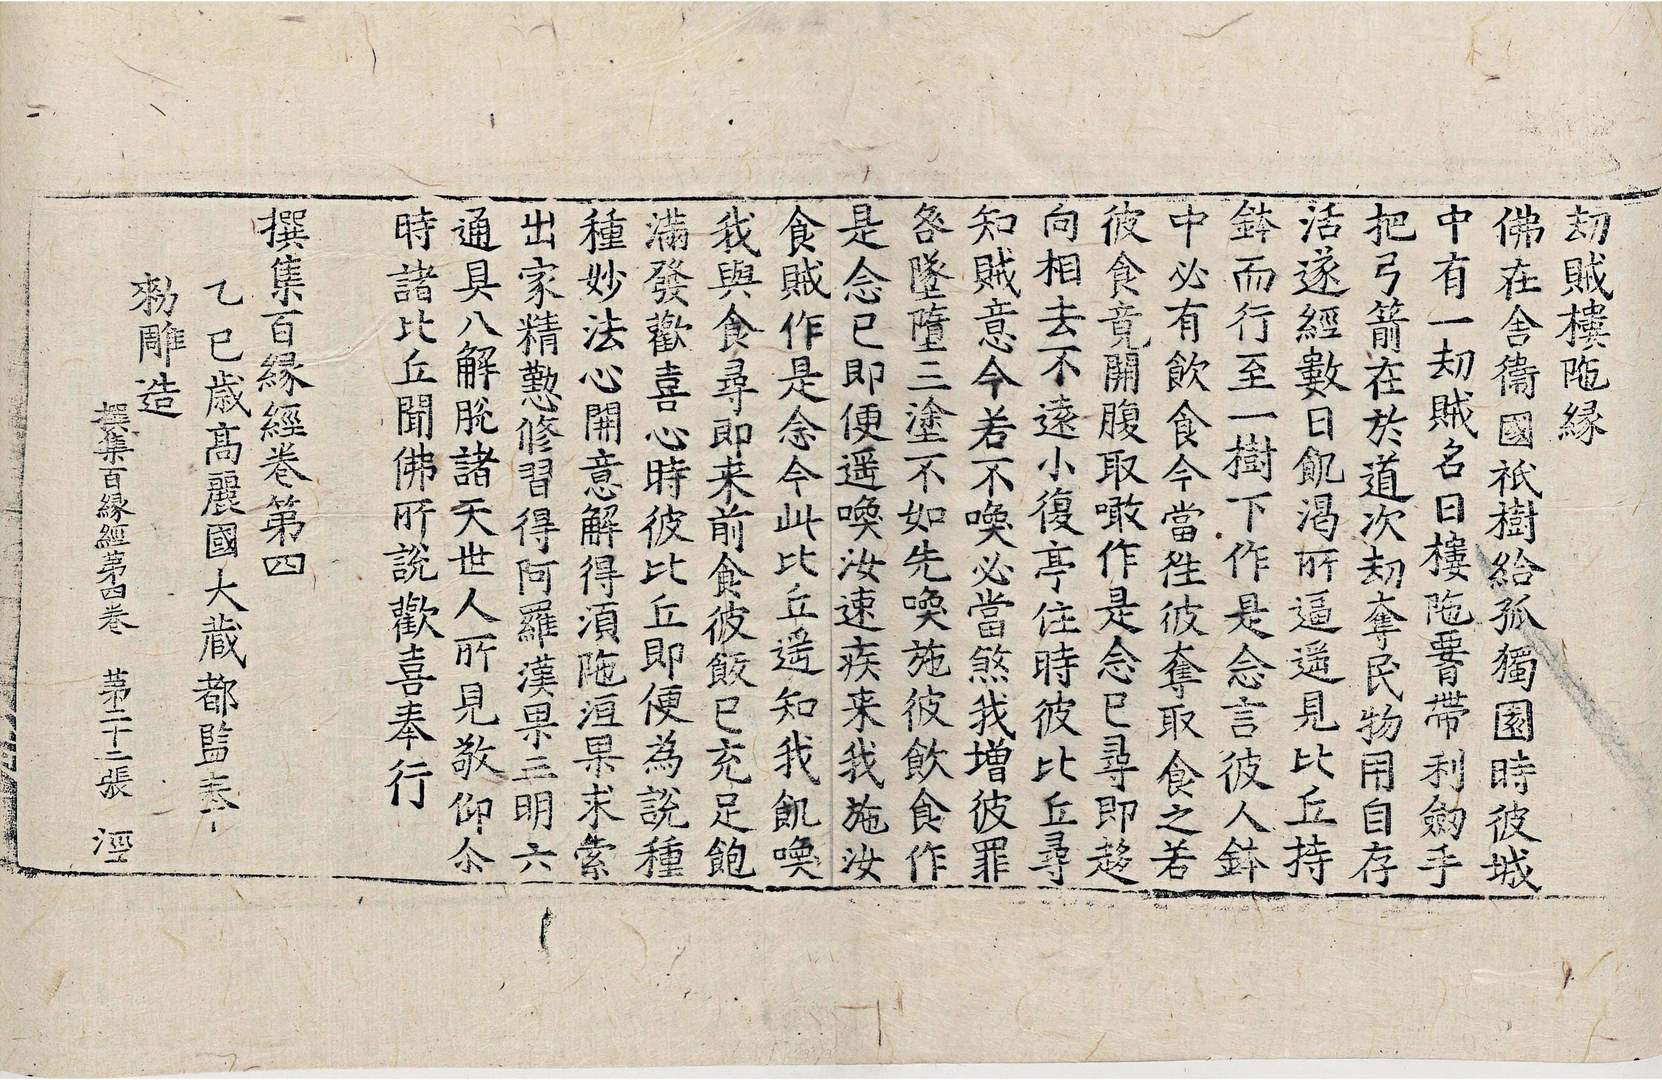 劫賊樓陁縁
佛在舍衞國祇樹給孤獨園時彼城
中有一刧賊名曰樓陁𦝫帶利劒手
把弓箭在於道次刧奪民物用自存
活遂經數日飢渴所逼遥見比丘持
鉢而行至一樹下作是念言彼人鉢
中必有飮食今當徃彼奪取食之若
彼食竟開腹取噉作是念已尋即趍
向相去不遠小復亭住時彼比丘尋
知賊意今若不喚必當煞我增彼罪
咎墜墮三塗不如先喚施彼飮食作
是念已即便遥喚汝速疾来我施汝
食賊作是念今此比丘遥知我飢喚
我與食尋即来前食彼飯已充足飽
滿發歡喜心時彼比丘即便為說種
種妙法心開意解得湏陁洹果求索
出家精懃修習得阿羅漢果三明六
通具八解脫諸天世人所見敬仰尒
時諸比丘聞佛所說歡喜奉行
撰集百縁經卷第四
乙巳歳髙麗國大藏都監奉
勑雕造
撰集百縁經第四卷 第二十二張 涇